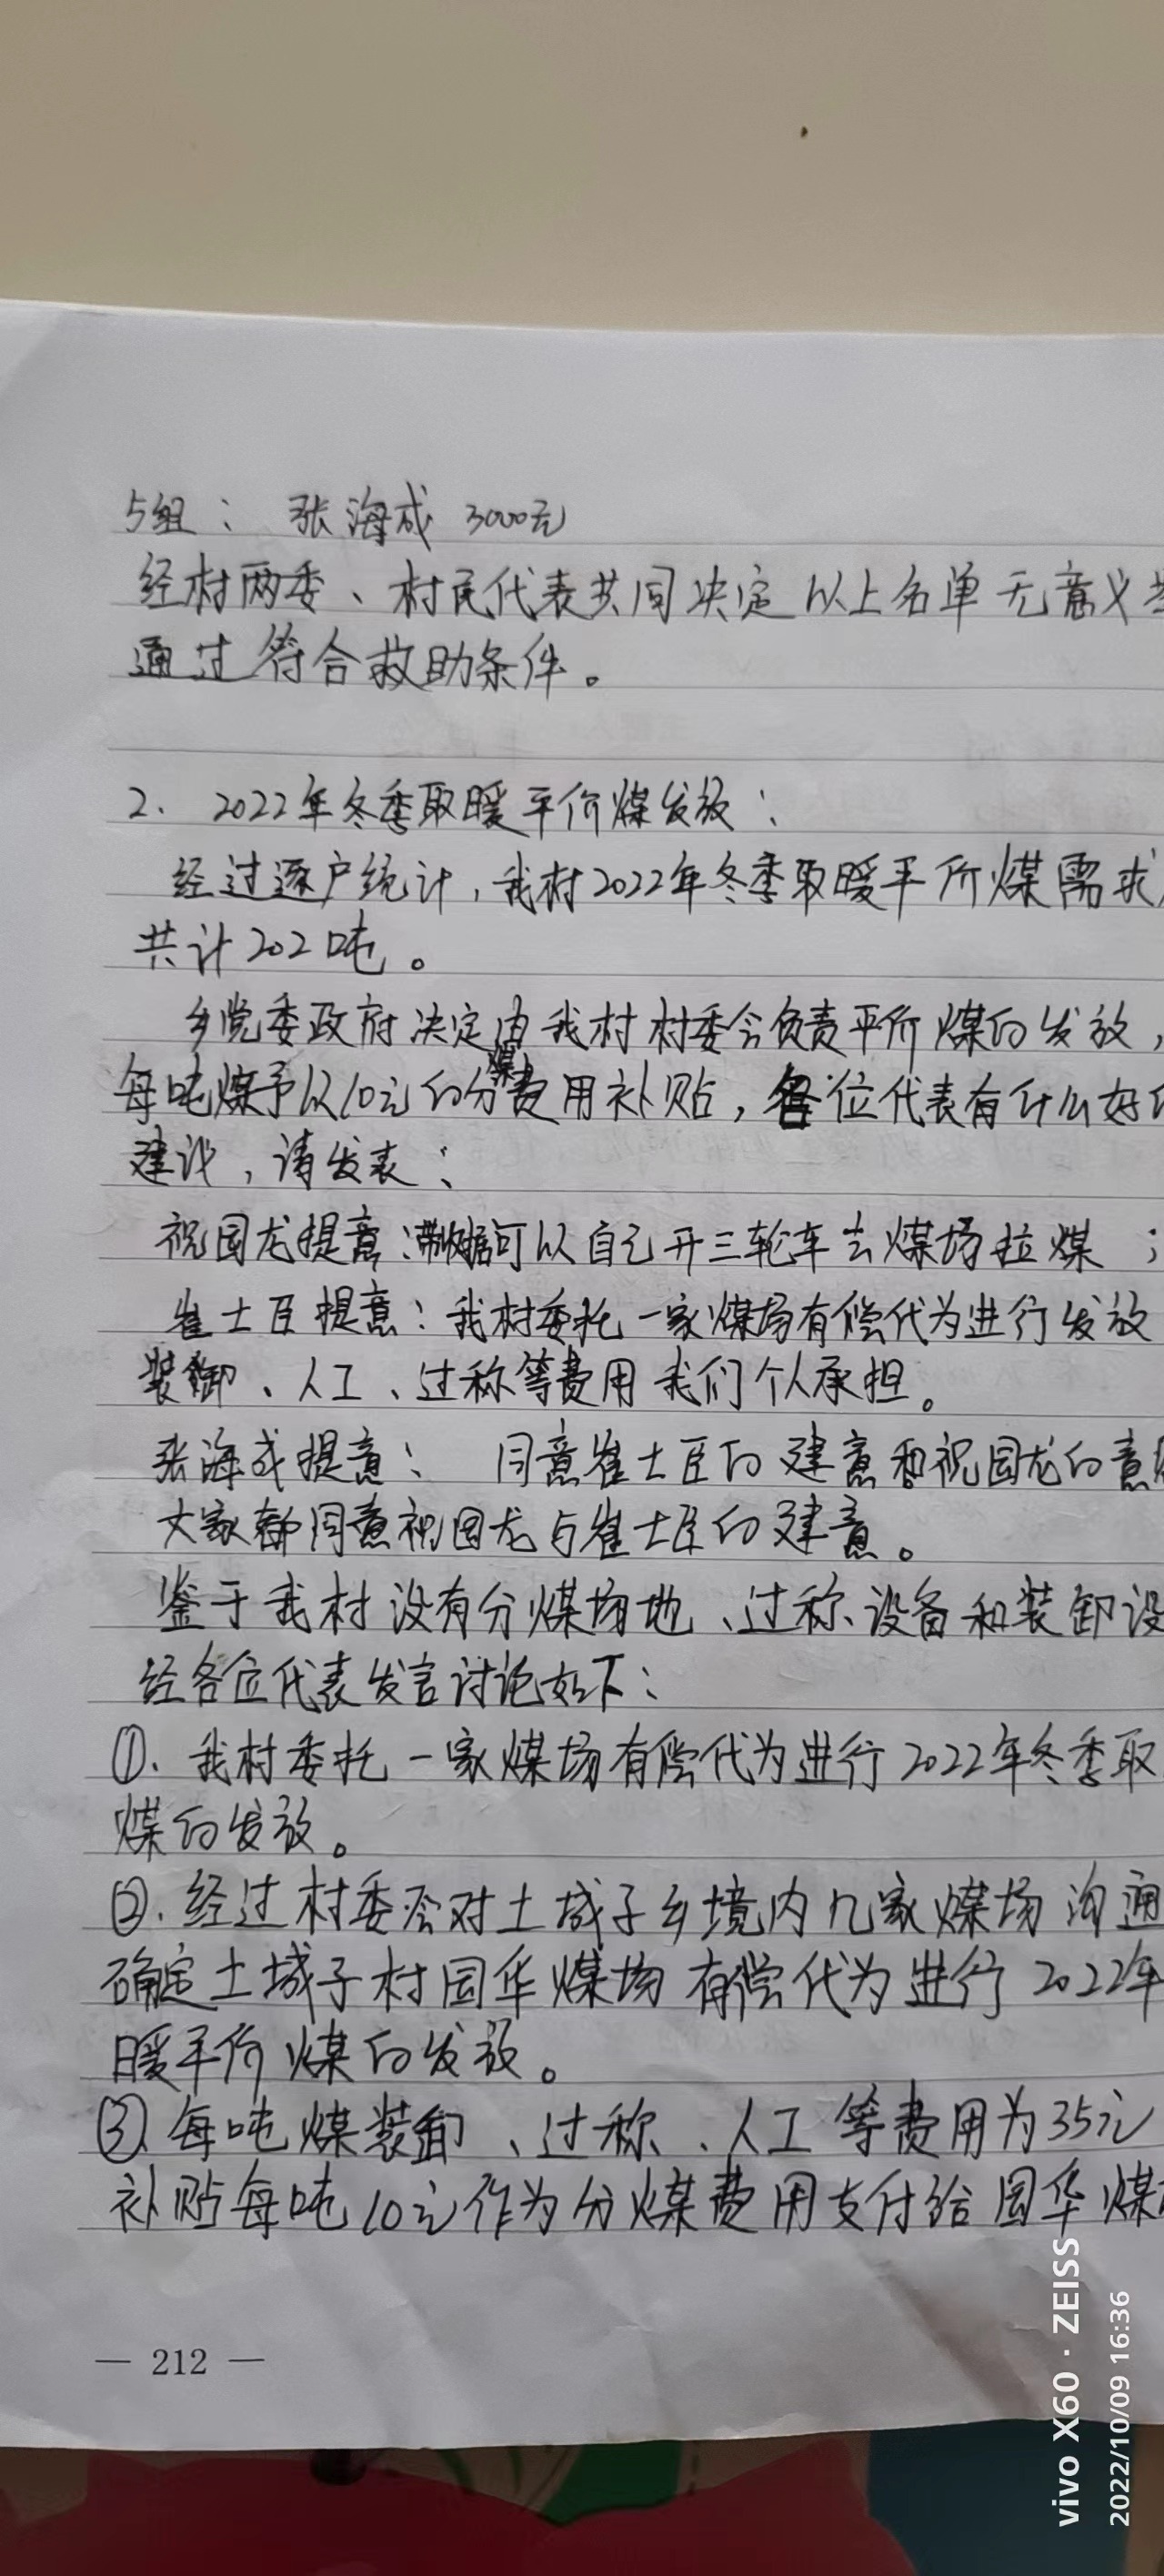 5组： 张海成 3000元
经村两委、村民代表共同决定 以上名单无意义
通过 符合救助条件。
2. 2022年冬季取暖平价煤发放：
经过逐户统计，我村2022年冬季取暖平价煤需求
共计202吨。
乡党委政府决定由我村村委会负责平价煤的发放，
每吨煤予以10元的分煤费用补贴，各位代表有什么好的
建议，请发表：
祝国龙提意：可以自己开三轮车去煤场拉煤；
崔士臣提意：我村委托一家煤场有偿代为进行发放
装卸、人工、过称等费用我们个人承担。
张海成提意： 同意崔士臣的建意和祝国龙的意
大家都同意祝国龙与崔士臣的建意。
鉴于我村没有分煤场地、过称、设备和装卸设
经各位代表发言讨论如下：
①. 我村委托一家煤场有偿代为进行2022年冬季取
煤的发放。
②. 经过村委会对土城子乡境内几家煤场沟通
确定土城子村国华煤场有偿代为进行2022年
暖平价煤的发放。
③. 每吨煤装卸、过称、人工等费用为35元
补贴每吨10元作为分煤费用支付给国华煤
— 212 —
vivo X60 · ZEISS
2022/10/09 16:36